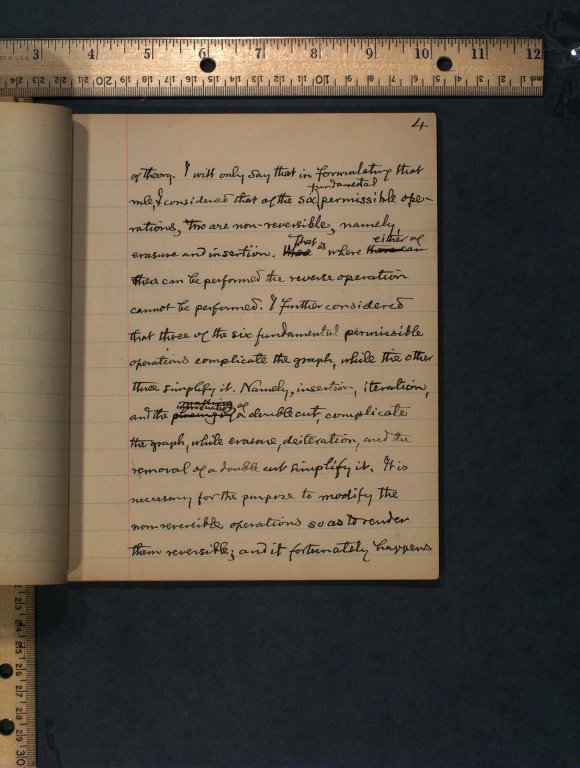 4
of theory. I will only say that in formulating that
fundamental
rule, I considered that of the six permissible ope-
rations, two are non-reversible, namely
erasure and insertion. That is where either of
these can be performed the reverse operation
cannot be performed. I further considered
that three of the six fundamental permissible
operations complicate the graph, while the other
three simplify it. Namely, insertion, iteration,
and the making of a double cut, complicate
the graph, while erasure, deiteration, and the
removal of a double cut simplify it. It is
necessary for the purpose to modify the
non-reversible operations so as to render
them reversible; and it fortunately happens